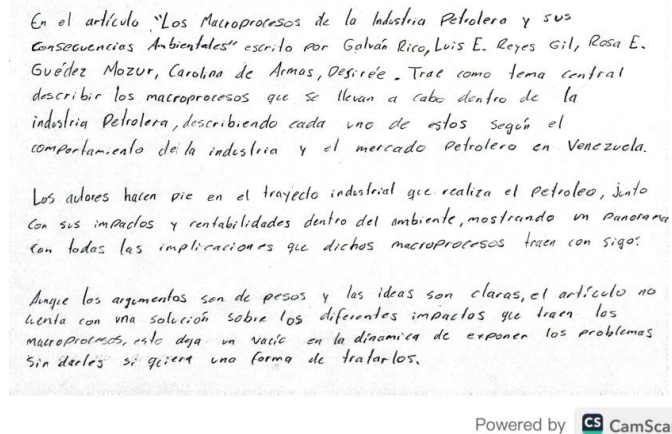 En el artículo "Los Macroprocesos de la Industria Petrolera y sus
Consecuencias Ambientales" escrito por Galván Rico, Luis E. Reyes Gil, Rosa E.
Guédez Mozur, Carolina de Armas, Desirée. Trae como tema central
describir los macroprocesos que se llevan a cabo dentro de la
industria Petrolera, describiendo cada uno de estos según el
comportamiento de la industria y el mercado Petrolero en Venezuela.
Los autores hacen pie en el trayecto industrial que realiza el Petroleo, junto
con sus impactos y rentabilidades dentro del ambiente, mostrando un Panorama
con todas las implicaciones que dichos macroprocesos traen con sigo.
Aunque los argumentos son de pesos y las ideas son claras, el artículo no
cuenta con una solución sobre los diferentes impactos que traen los
macroprocesos, esto deja un vacío en la dinamica de exponer los problemas
sin darles si quiera una forma de tratarlos.
Powered by CS CamSca